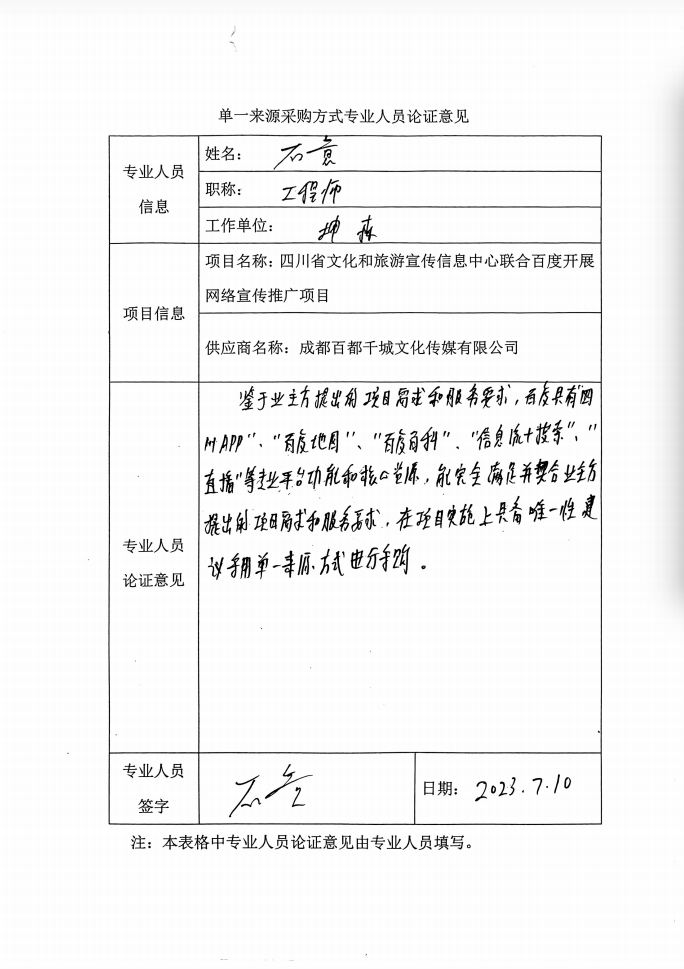 单一来源采购方式专业人员论证意见
专业人员
信息
姓名：石意
职称：工程师
工作单位：坤森
项目信息
项目名称：四川省文化和旅游宣传信息中心联合百度开展
网络宣传推广项目
供应商名称：成都百都千城文化传媒有限公司
专业人员
论证意见
鉴于业主方提出的项目需求和服务要求，百度具有"四
川APP"、"百度地图"、"百度百科"、"信息流+搜索"、"
直播"等专业平台功能和核心资源，能完全满足并契合业主方
提出的项目需求和服务要求，在项目实施上具备唯一性建
议采用单一来源方式进行采购。
专业人员
签字
石意
日期：2023.7.10
注：本表格中专业人员论证意见由专业人员填写。